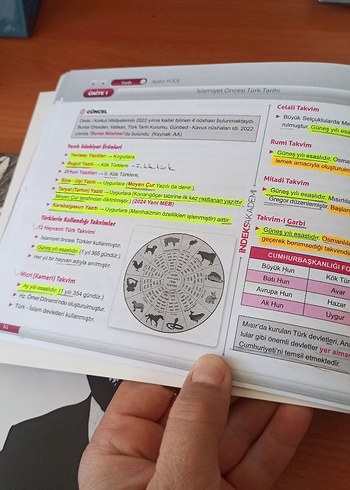 Tarih
Aydın YÜCE
ÜNİTE 1
İslamiyet Öncesi Türk Tarihi
GÜNCEL
Dede - Korkut Hikâyelerinin 2022 yılına kadar bilinen 4 nüshası bulunmaktaydı.
Bunlar Dresden, Vatikan, Türk Tarih Kurumu, Günbed - Kavus nüshaları idi. 2022
yılında "Bursa Nüshası"da bulundu. (Kaynak: AA)
Yazılı Edebiyat Ürünleri
Yenisey Yazıtları → Kırgızlara,
Bugut Yazıtı → I. Kök Türklere,
Orhun Yazıtları → II. Kök Türklere,
Sine - Uşu Yazıtı → Uygurlara (Moyen Çur Yazıtı da denir.),
Karabalgasun Yazıtı → Uygurlara (Manihaizmin özellikleri işlenmiştir) aittir.
Türklerin Kullandığı Takvimler
12 Hayvanlı Türk Takvimi
İslamiyet öncesi Türkler kullanmıştır.
Güneş yılı esaslıdır. (1 yıl 365 gündür.)
Her yıl bir hayvan adıyla anılmıştır.
Hicri (Kameri) Takvim
Ay yılı esaslıdır. (1 yıl 354 gündür.)
Hz. Ömer Dönemi'nde oluşturulmuştur.
Türk - İslam devletleri kullanmıştır.
Celali Takvim
Büyük Selçuklularda Me
rulmuştur. Güneş yılı esa
Rumi Takvim
Güneş yılı esaslıdır. Osma
lemek amacıyla oluşturulm
Miladi Takvim
Güneş yılı esaslıdır. Mısırlılar
Gregor düzenlemiştir. Başlan
Takvim-i Garbi
Güneş yılı esaslıdır. Osmanlı
geçerek benimsediği takvimdi
İNDEKSAKADEMİ
CUMHURBAŞKANLIĞI FO
Büyük Hun
Kök Tür
Batı Hun
Avar
Avrupa Hun
Hazar
Ak Hun
Uygur
Mısır'da kurulan Türk devletleri, Ana
lular gibi önemli devletler yer alma
Cumhuriyeti'ni temsil etmektedir.